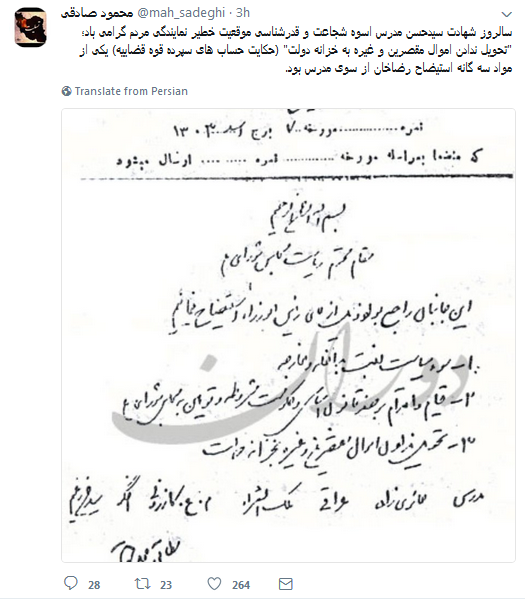 محمود صادقی @mah_sadeghi · 3h
سالروز شهادت سیدحسن مدرس اسوه شجاعت و قدرشناسی موقعیت خطیر نمایندگی مردم گرامی باد؛
"تحویل ندادن اموال مقصرین و غیره به خزانه دولت" (حکایت حساب های سپرده قوه قضاییه) یکی از
مواد سه گانه استیضاح رضاخان از سوی مدرس بود.
Translate from Persian
نمره ............ مورخه ..۷ برج اسد ۱۳۰۳
که منضما بمراسله مورخه ............ نمره ............ ارسال میشود
بسم الله الرحمن الرحیم
مقام محترم ریاست مجلس شورای
این جانبان راجع بمواد ذیل از آقای رئیس الوزراء استیضاح مینمائیم
۱- سوء سیاست نسبت بداخله و خارجه
۲- قیام و اقدام بر ضد قانون اساسی و حکومت مشروطه و توهین به مجلس شورای
۳- تحویل ندادن اموال مقصرین و غیره بخزانه دولت
مدرس حائری زاده عراقی ملک الشعراء کازرونی اخگر سید
دوران
28 23 264